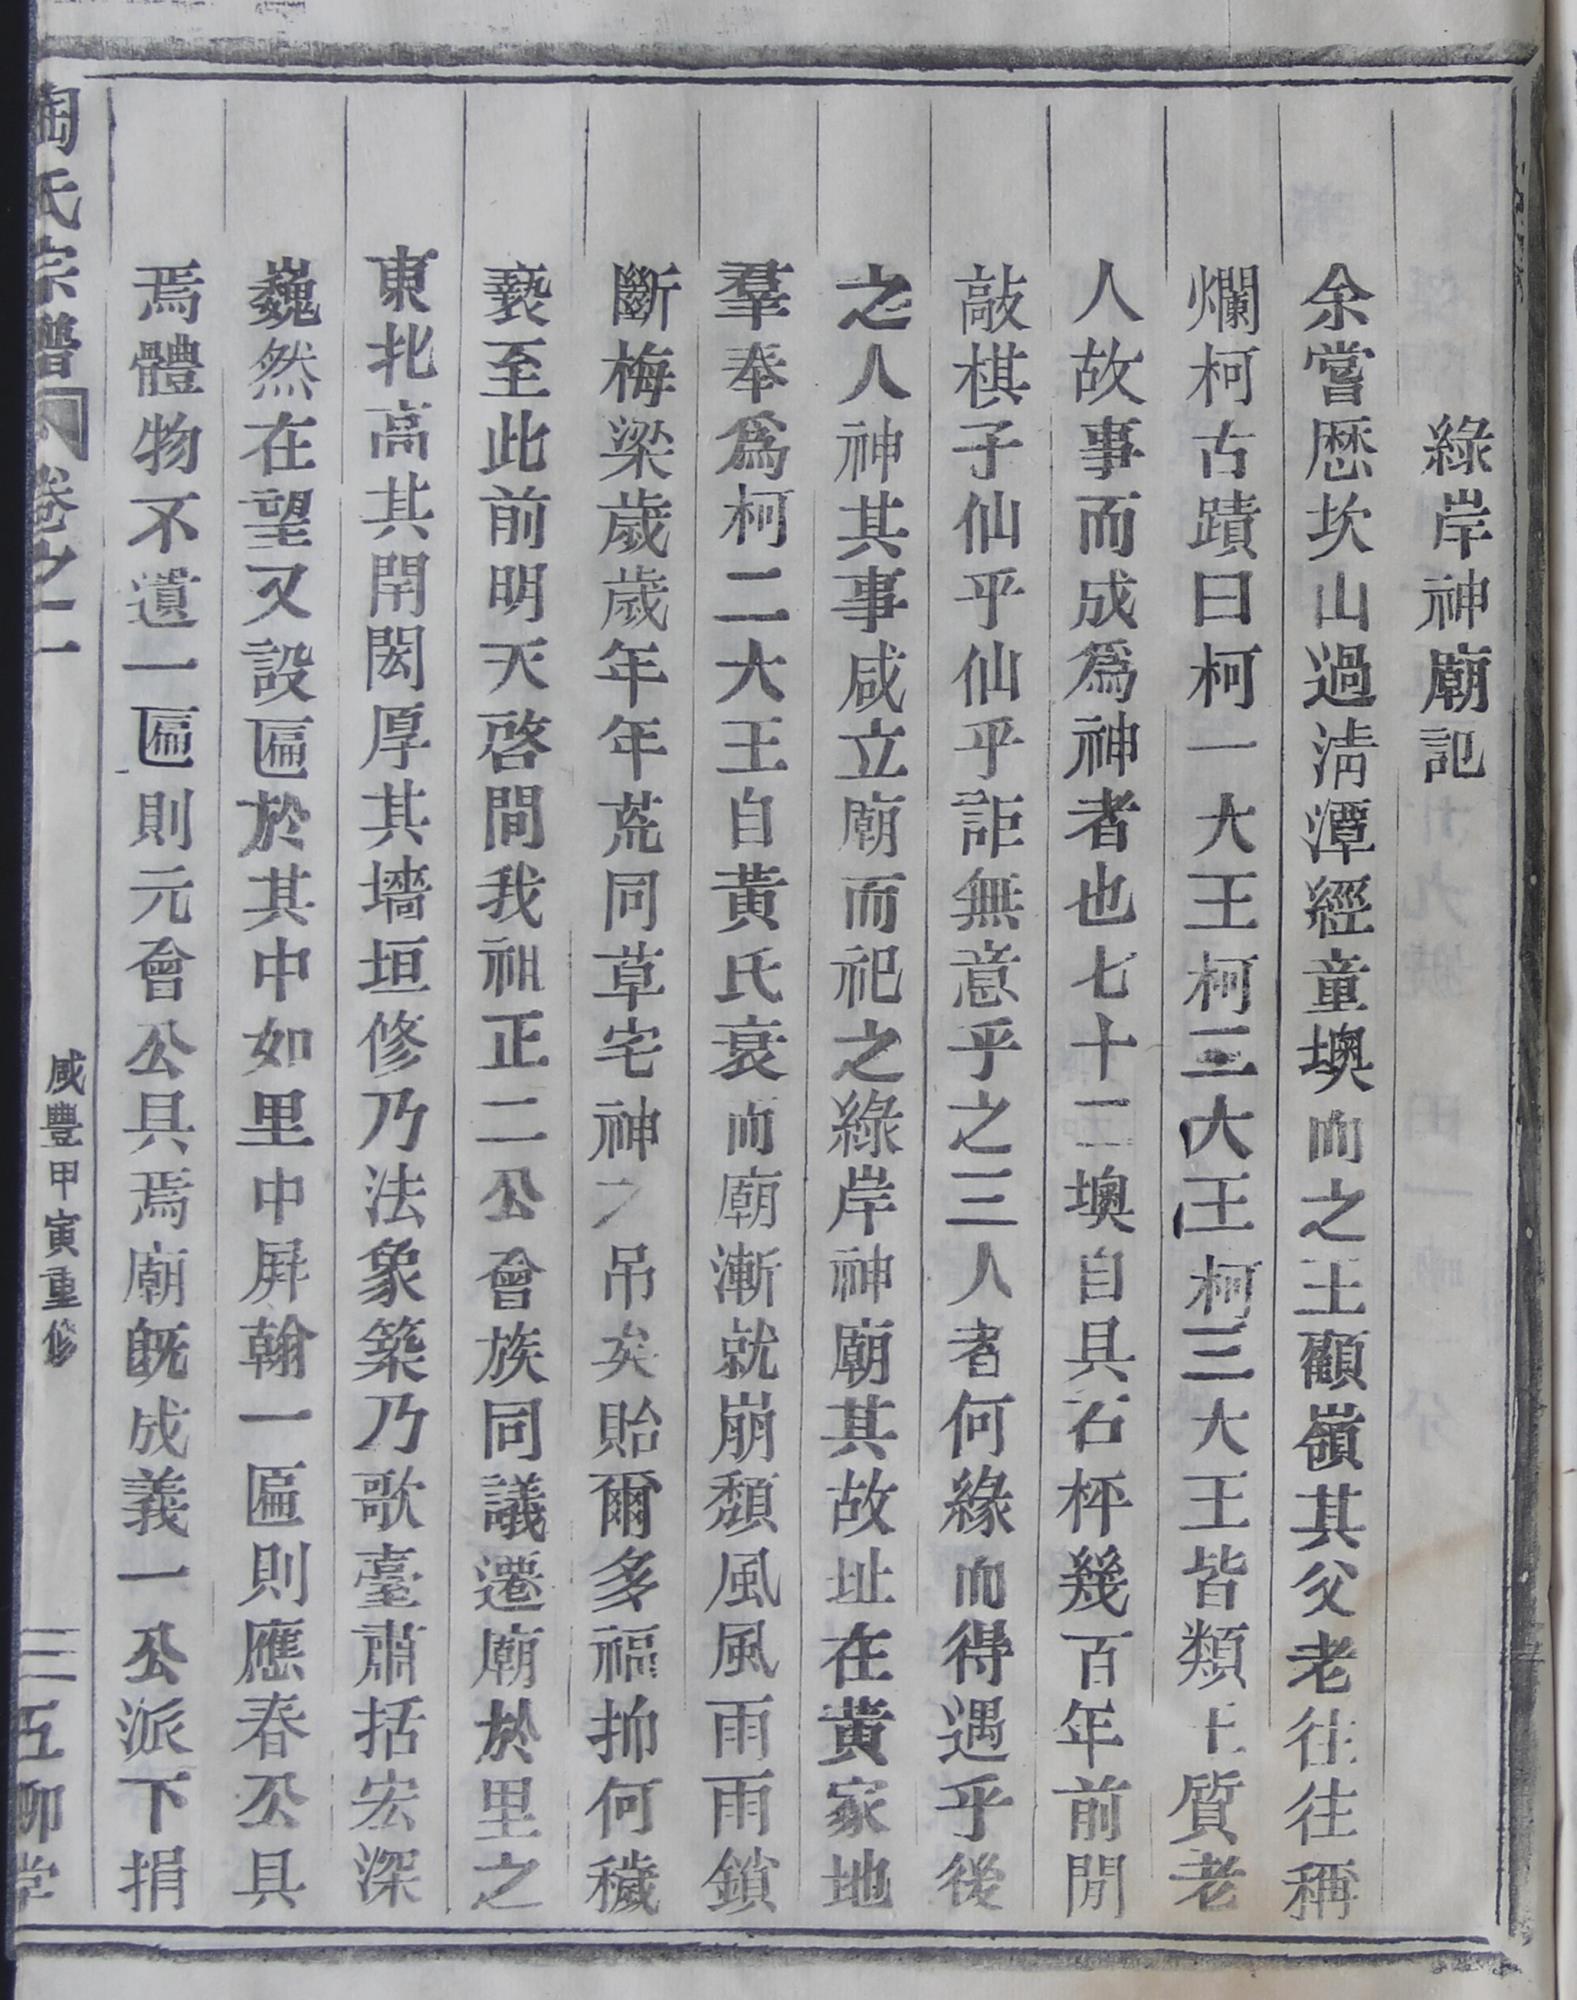 綠岸神廟記
余嘗歷坎山過淸潭經童墺而之王顧嶺其父老往往稱
爛柯古蹟曰柯一大王柯二大王柯三大王皆類土質老
人故事而成爲神者也七十二墺自具石枰幾百年前閒
敲棋子仙乎仙乎詎無意乎之三人者何緣而得遇乎後
之人神其事咸立廟而祀之綠岸神廟其故址在黃家地
羣奉爲柯二大王自黃氏衰而廟漸就崩頹風風雨雨鎖
斷梅梁歲歲年年荒同草宅神之吊矣貽爾多福抑何穢
褻至此前明天啓間我祖正二公會族同議遷廟於里之
東北高其閈閎厚其墻垣修乃法象築乃歌臺肅括宏深
巍然在望又設匾於其中如里中屛翰一匾則應春公具
焉體物不遺一匾則元會公具焉廟旣成義一公派下捐
陶氏宗譜 卷之一 咸豐甲寅重修 三 五柳堂